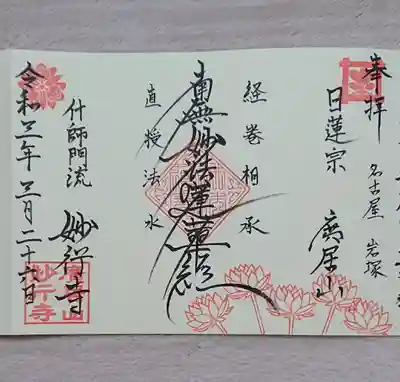 奉拝
名古屋 岩塚
日蓮宗
経巻相承
南無妙法蓮華経
直授法水
什師門流
令和三年三月二十六日